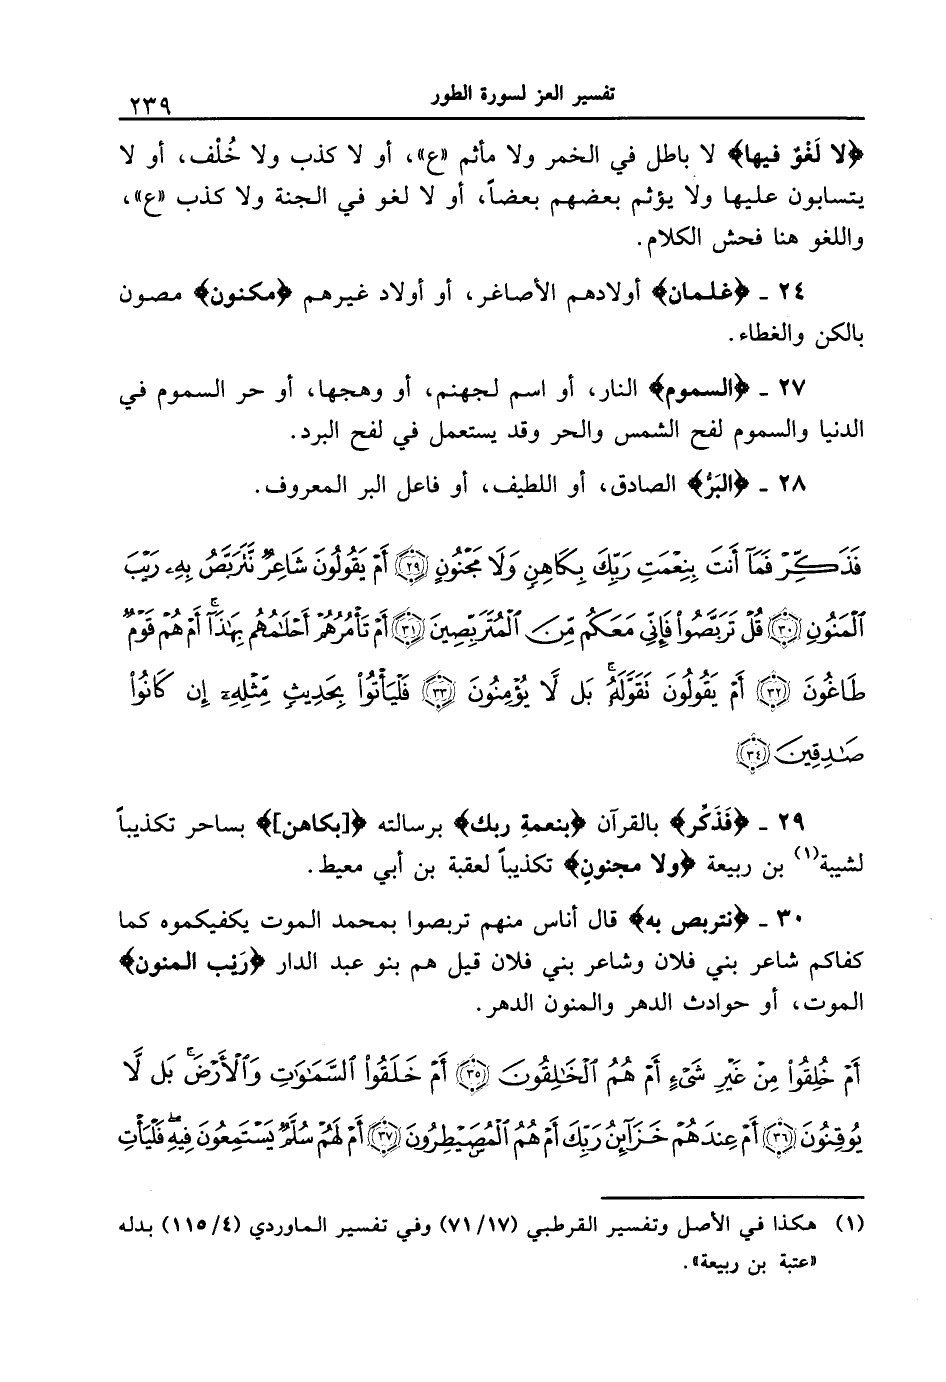 تفسير العز لسورة الطور
٢٣٩
﴿لا لَغْوٌ فيها﴾ لا باطل في الخمر ولا مأثم «ع»، أو لا كذب ولا خُلْف، أو لا
يتسابون عليها ولا يؤثم بعضهم بعضاً، أو لا لغو في الجنة ولا كذب «ع»،
واللغو هنا فحش الكلام.
٢٤ ـ ﴿غلمان﴾ أولادهم الأصاغر، أو أولاد غيرهم ﴿مكنون﴾ مصون
بالكن والغطاء.
٢٧ ـ ﴿السموم﴾ النار، أو اسم لجهنم، أو وهجها، أو حر السموم في
الدنيا والسموم لفح الشمس والحر وقد يستعمل في لفح البرد.
٢٨ ـ ﴿البَرُّ﴾ الصادق، أو اللطيف، أو فاعل البر المعروف.
فَذَكِّرْ فَمَآ أَنتَ بِنِعْمَتِ رَبِّكَ بِكَاهِنٍ وَلَا مَجْنُونٍ ﴿٢٩﴾ أَمْ يَقُولُونَ شَاعِرٌ نَّتَرَبَّصُ بِهِۦ رَيْبَ
ٱلْمَنُونِ ﴿٣٠﴾ قُلْ تَرَبَّصُوا۟ فَإِنِّى مَعَكُم مِّنَ ٱلْمُتَرَبِّصِينَ ﴿٣١﴾ أَمْ تَأْمُرُهُمْ أَحْلَٰمُهُم بِهَٰذَآ ۚ أَمْ هُمْ قَوْمٌ
طَاغُونَ ﴿٣٢﴾ أَمْ يَقُولُونَ تَقَوَّلَهُۥ ۚ بَل لَّا يُؤْمِنُونَ ﴿٣٣﴾ فَلْيَأْتُوا۟ بِحَدِيثٍ مِّثْلِهِۦٓ إِن كَانُوا۟
صَٰدِقِينَ ﴿٣٤﴾
٢٩ ـ ﴿فَذَكِّر﴾ بالقرآن ﴿بنعمةِ ربك﴾ برسالته ﴿[بكاهن]﴾ بساحر تكذيباً
لشيبة(١) بن ربيعة ﴿ولا مجنونٍ﴾ تكذيباً لعقبة بن أبي معيط.
٣٠ ـ ﴿نتربص به﴾ قال أناس منهم تربصوا بمحمد الموت يكفيكموه كما
كفاكم شاعر بني فلان وشاعر بني فلان قيل هم بنو عبد الدار ﴿رَيْب المنون﴾
الموت، أو حوادث الدهر والمنون الدهر.
أَمْ خُلِقُوا۟ مِنْ غَيْرِ شَىْءٍ أَمْ هُمُ ٱلْخَٰلِقُونَ ﴿٣٥﴾ أَمْ خَلَقُوا۟ ٱلسَّمَٰوَٰتِ وَٱلْأَرْضَ ۚ بَل لَّا
يُوقِنُونَ ﴿٣٦﴾ أَمْ عِندَهُمْ خَزَآئِنُ رَبِّكَ أَمْ هُمُ ٱلْمُصَۣيْطِرُونَ ﴿٣٧﴾ أَمْ لَهُمْ سُلَّمٌ يَسْتَمِعُونَ فِيهِ ۖ فَلْيَأْتِ
(١) هكذا في الأصل وتفسير القرطبي (٧١/١٧) وفي تفسير الماوردي (١١٥/٤) بدله
«عتبة بن ربيعة».